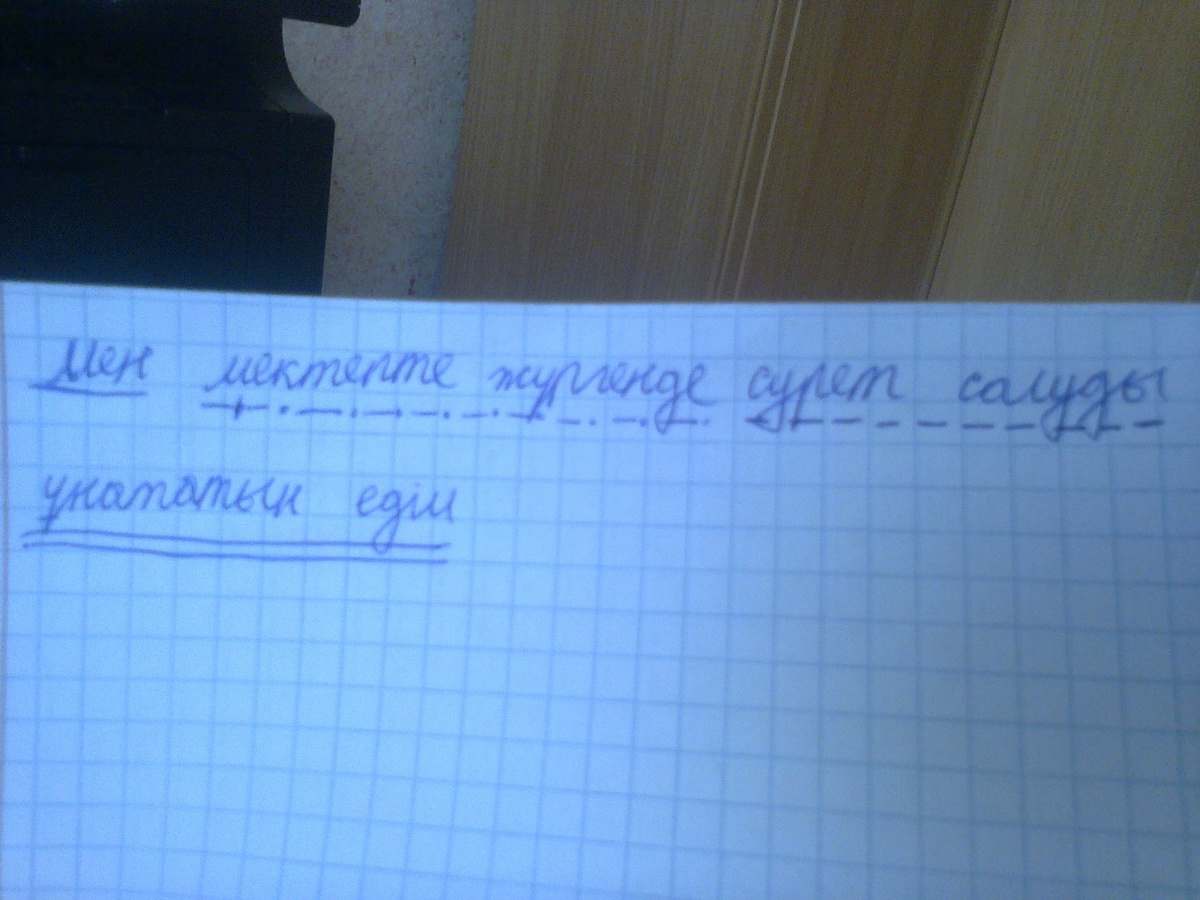 Мен мектепте жүргенде сурет салуды
ұнататын едім